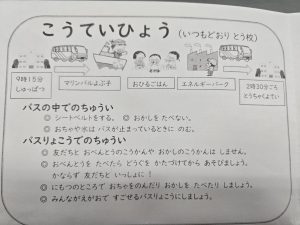 こうていひょう（いつもどおり とう校）
9時15分 しゅっぱつ
マリンパルよぶ子
おひるごはん
エネルギーパーク
2時30分ごろ とうちゃくよてい
バスの中でのちゅうい
◎ シートベルトをする。 ◎ おかしを たべない。
◎ おちゃや水は バスが止まっているときに のむ。
バスりょこうでのちゅうい
◎ 友だちと おべんとうのこうかんや おかしのこうかんは しません。
◎ おべんとうを たべたら どうぐを かたづけてから あそびましょう。
かならず 友だちと いっしょに！
◎ にもつのところで おちゃをのんだり おかしを たべたり しましょう。
◎ みんながえがおで すごせるバスりょこうにしましょう。